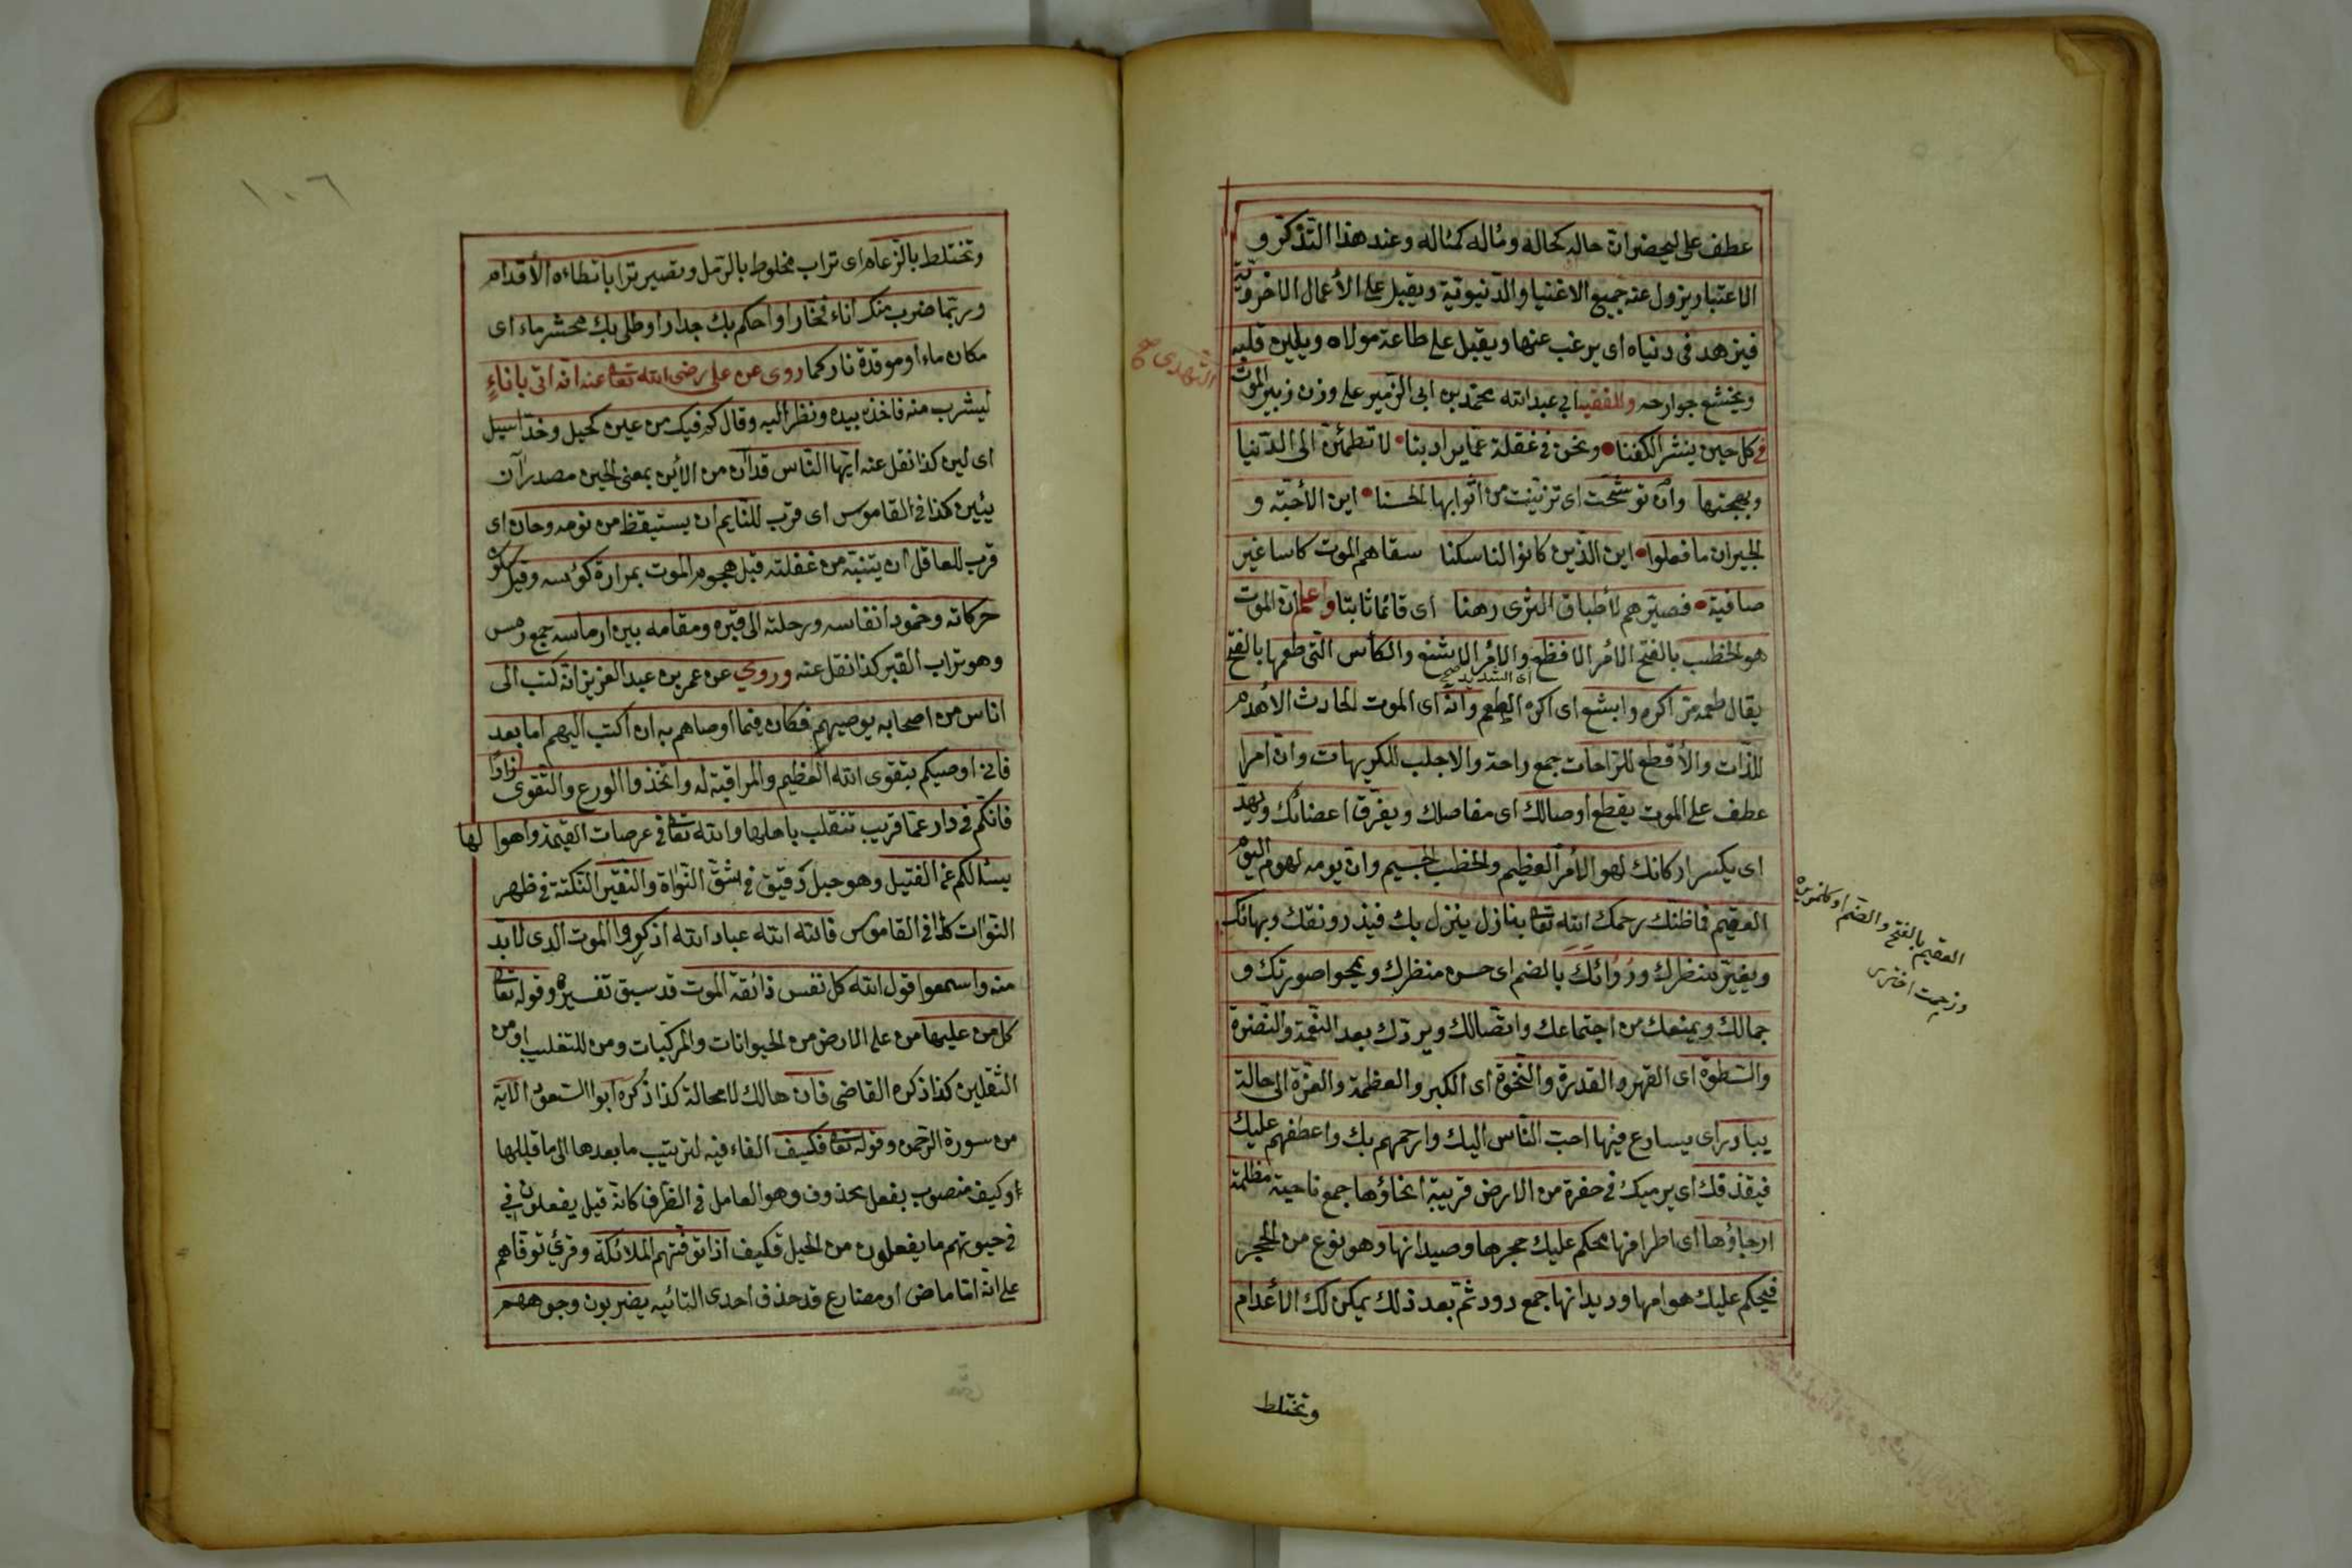 عطف على ليحضر ان حاله كحاله ومٰاله كمٰاله وعند هذا التذكر و
الاعتبار يزول عنه جميع الاغنيا والدنيوية ويقبل على الأعمال الاخروية
فيزهد فى دنياه اى يرغب عنها ويقبل على طاعة مولاه ويلين قلبه
ويخشع جوارحه وللفقيه ابي عبد الله محمد بن ابى الزمير على وزن زبير الموت
في كل حين ينشر الكفنا ونحن فى غفلة عما يراد بنا لا تطمئن الى الدنيا
وبهجتها وان توشحت اى تزينت من اثوابها الحسنا اين الأحبة و
الجيران ما فعلوا اين الذين كانوا لنا سكنا سقاهم الموت كاسا غير
صافية فصيرهم لأطباق الثرى رهنا اى قائما ثابتا واعلم ان الموت
هو الخطب بالفتح الامر الافظع والامر الاشنع والكأس التى طعمها بالفتح
اى الشديد صح
يقال طعمه مر اكره وابشع اى اكره الطعم وانه اى الموت الحادث الأهدم
للذات والأقطع للراحات جمع راحة والاجلب للكريهات وان امرا
عطف على الموت يقطع اوصالك اى مفاصلك ويفرق اعضائك ويهد
اى يكسر اركانك لهو الأمر العظيم والخطب الجسيم وان يومه لهو اليوم
العقيم فاظنك رحمك الله تعا بنازل ينزل بك فيذ رونقك وبهائك
ويغير منظرك ورُوَائكَ بالضم اى حسن منظرك ويمحوا صورتك و
جمالك ويمنعك من اجتماعك واتصالك ويردك بعد النعمة والنضرة
والسطوة اى القهر والقدرة والنخوة اى الكبر والعظمة والعزة الى حالة
يبادر اى يسارع فيها احب الناس اليك وارحمهم بك واعطفهم عليك
فيقذفك اى يرميك فى حفرة من الارض قريبة انحاؤها جمع ناحية مظلمة
ارجاؤها اى اطرافها محكم عليك حجرها وصيدانها وهو نوع من الحجر
فيحكم عليك هوامها وديدانها جمع دود ثم بعد ذلك يمكن لك الأعدام
وتختلط
العقيم بالفتح والضم
اختري
١٠٦
وتختلط بالرغام اى تراب مخلوط بالرمل وتصير ترابا تطاءه الأقدام
وربما ضرب منك اناء فخار او احكم بك جدار او طلى بك محشر ماء اى
مكان ماء او موقدة نار كما روى عن على رضى الله تعا عنه انه اتى باناءٍ
ليشرب منه فاخذه بيده ونظر اليه وقال كم فيك من عين كحيل وخد اسيل
اى لين كذا نقل عنه ايها الناس قد آن من الأين بمعنى الحين مصدر آن
يئين كذا فى القاموس اى قرب للنايم ان يستيقظ من نومه وحان اى
قرب للعاقل ان يتنبه من غفلته قبل هجوم الموت بمرارة كوسه وقبل سكون
حركاته وخمود انفاسه ورحلته الى قبره ومقامه بين ارماسه جمع رمس
وهو تراب القبر كذا نقل عنه وروي عن عمر بن عبد العزيز انه كتب الى
اناس من اصحابه يوصيهم فكان فيما اوصاهم به ان اكتب اليهم اما بعد
فانى اوصيكم بتقوى الله العظيم والمراقبة له واتخذوا الورع والتقوى زادا
فانكم فى دار عما قريب تنقلب باهلها والله تعا فى عرصات القيمة واهوالها
يسئالكم عن الفتيل وهو حبل رقيق فى شق النواة والنقير النكتة فى ظهر
النوات كذا فى القاموس فالله الله عباد الله اذكروا الموت الذى لابد
منه واسمعوا قول الله كل نفس ذائقة الموت قد سبق تفسيره وقوله تعا
كل من عليها من على الارض من الحيوانات والمركبات ومن للتغليب او من
الثقلين كذا ذكره القاضى فان هالك لا محالة كذا ذكره ابو السعود الآية
من سورة الرحمن وقوله تعا فكيف الفاء فيه لترتيب ما بعدها الى ما قبلها
وكيف منصوب بفعل محذوف وهو العامل فى الظرف كانه قيل يفعلون في
فى حيوتهم ما يفعلون من الحيل فكيف اذا توفتهم الملائكة وقرئ توفاهم
على انه اما ماض او مضارع قد حذف احدى التائيه يضربون وجوههم